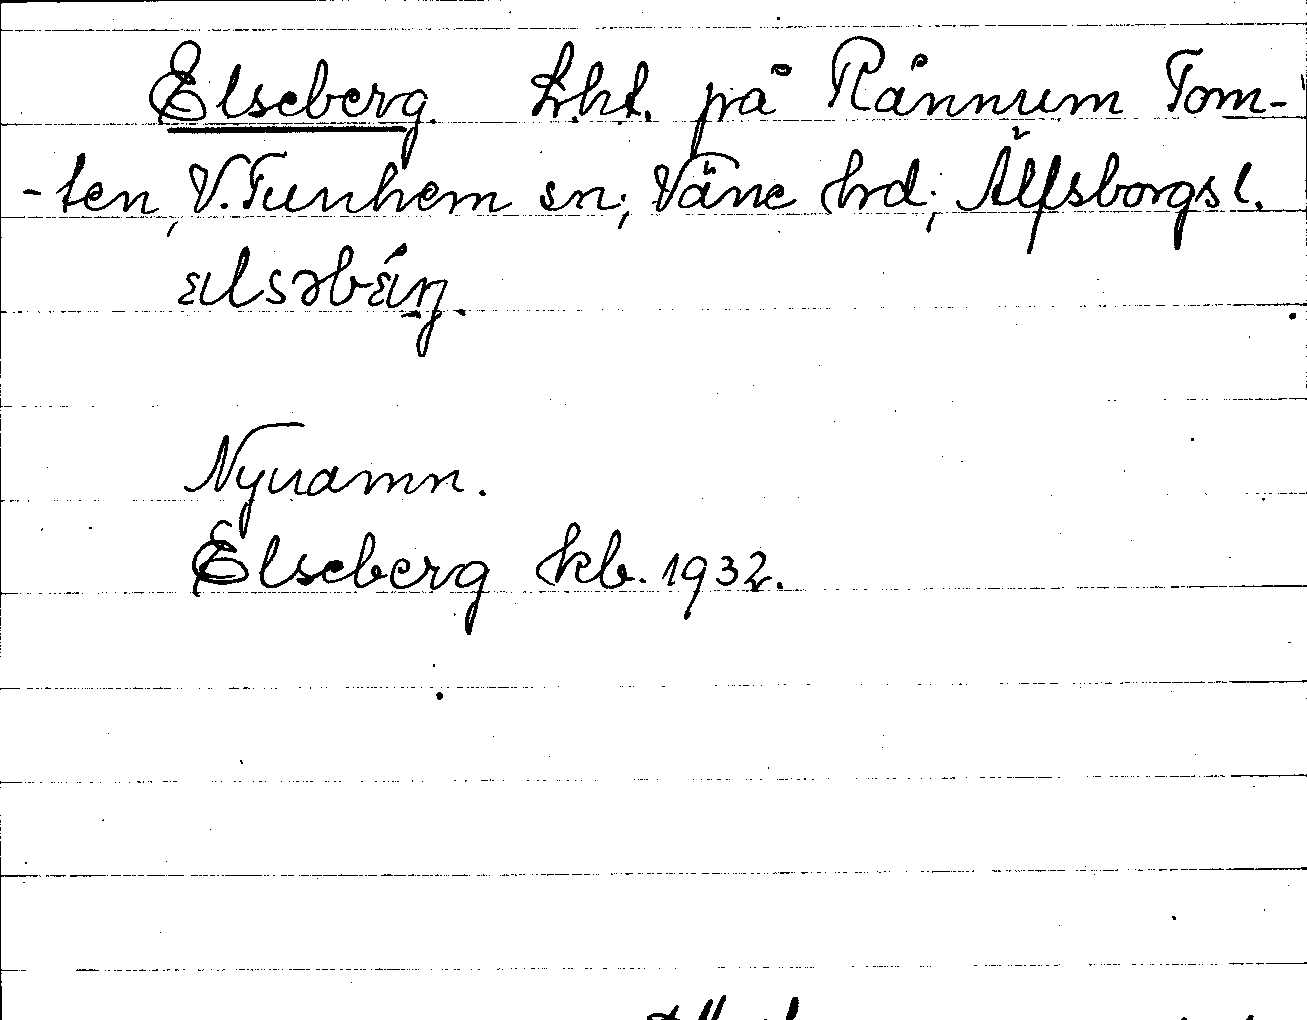 Elseberg. Lht. på Rånnum Tom-
-ten, V. Tunhem sn; Väne hd; Älfsborgs l.
Nynamn.
Elseberg kb. 1932.